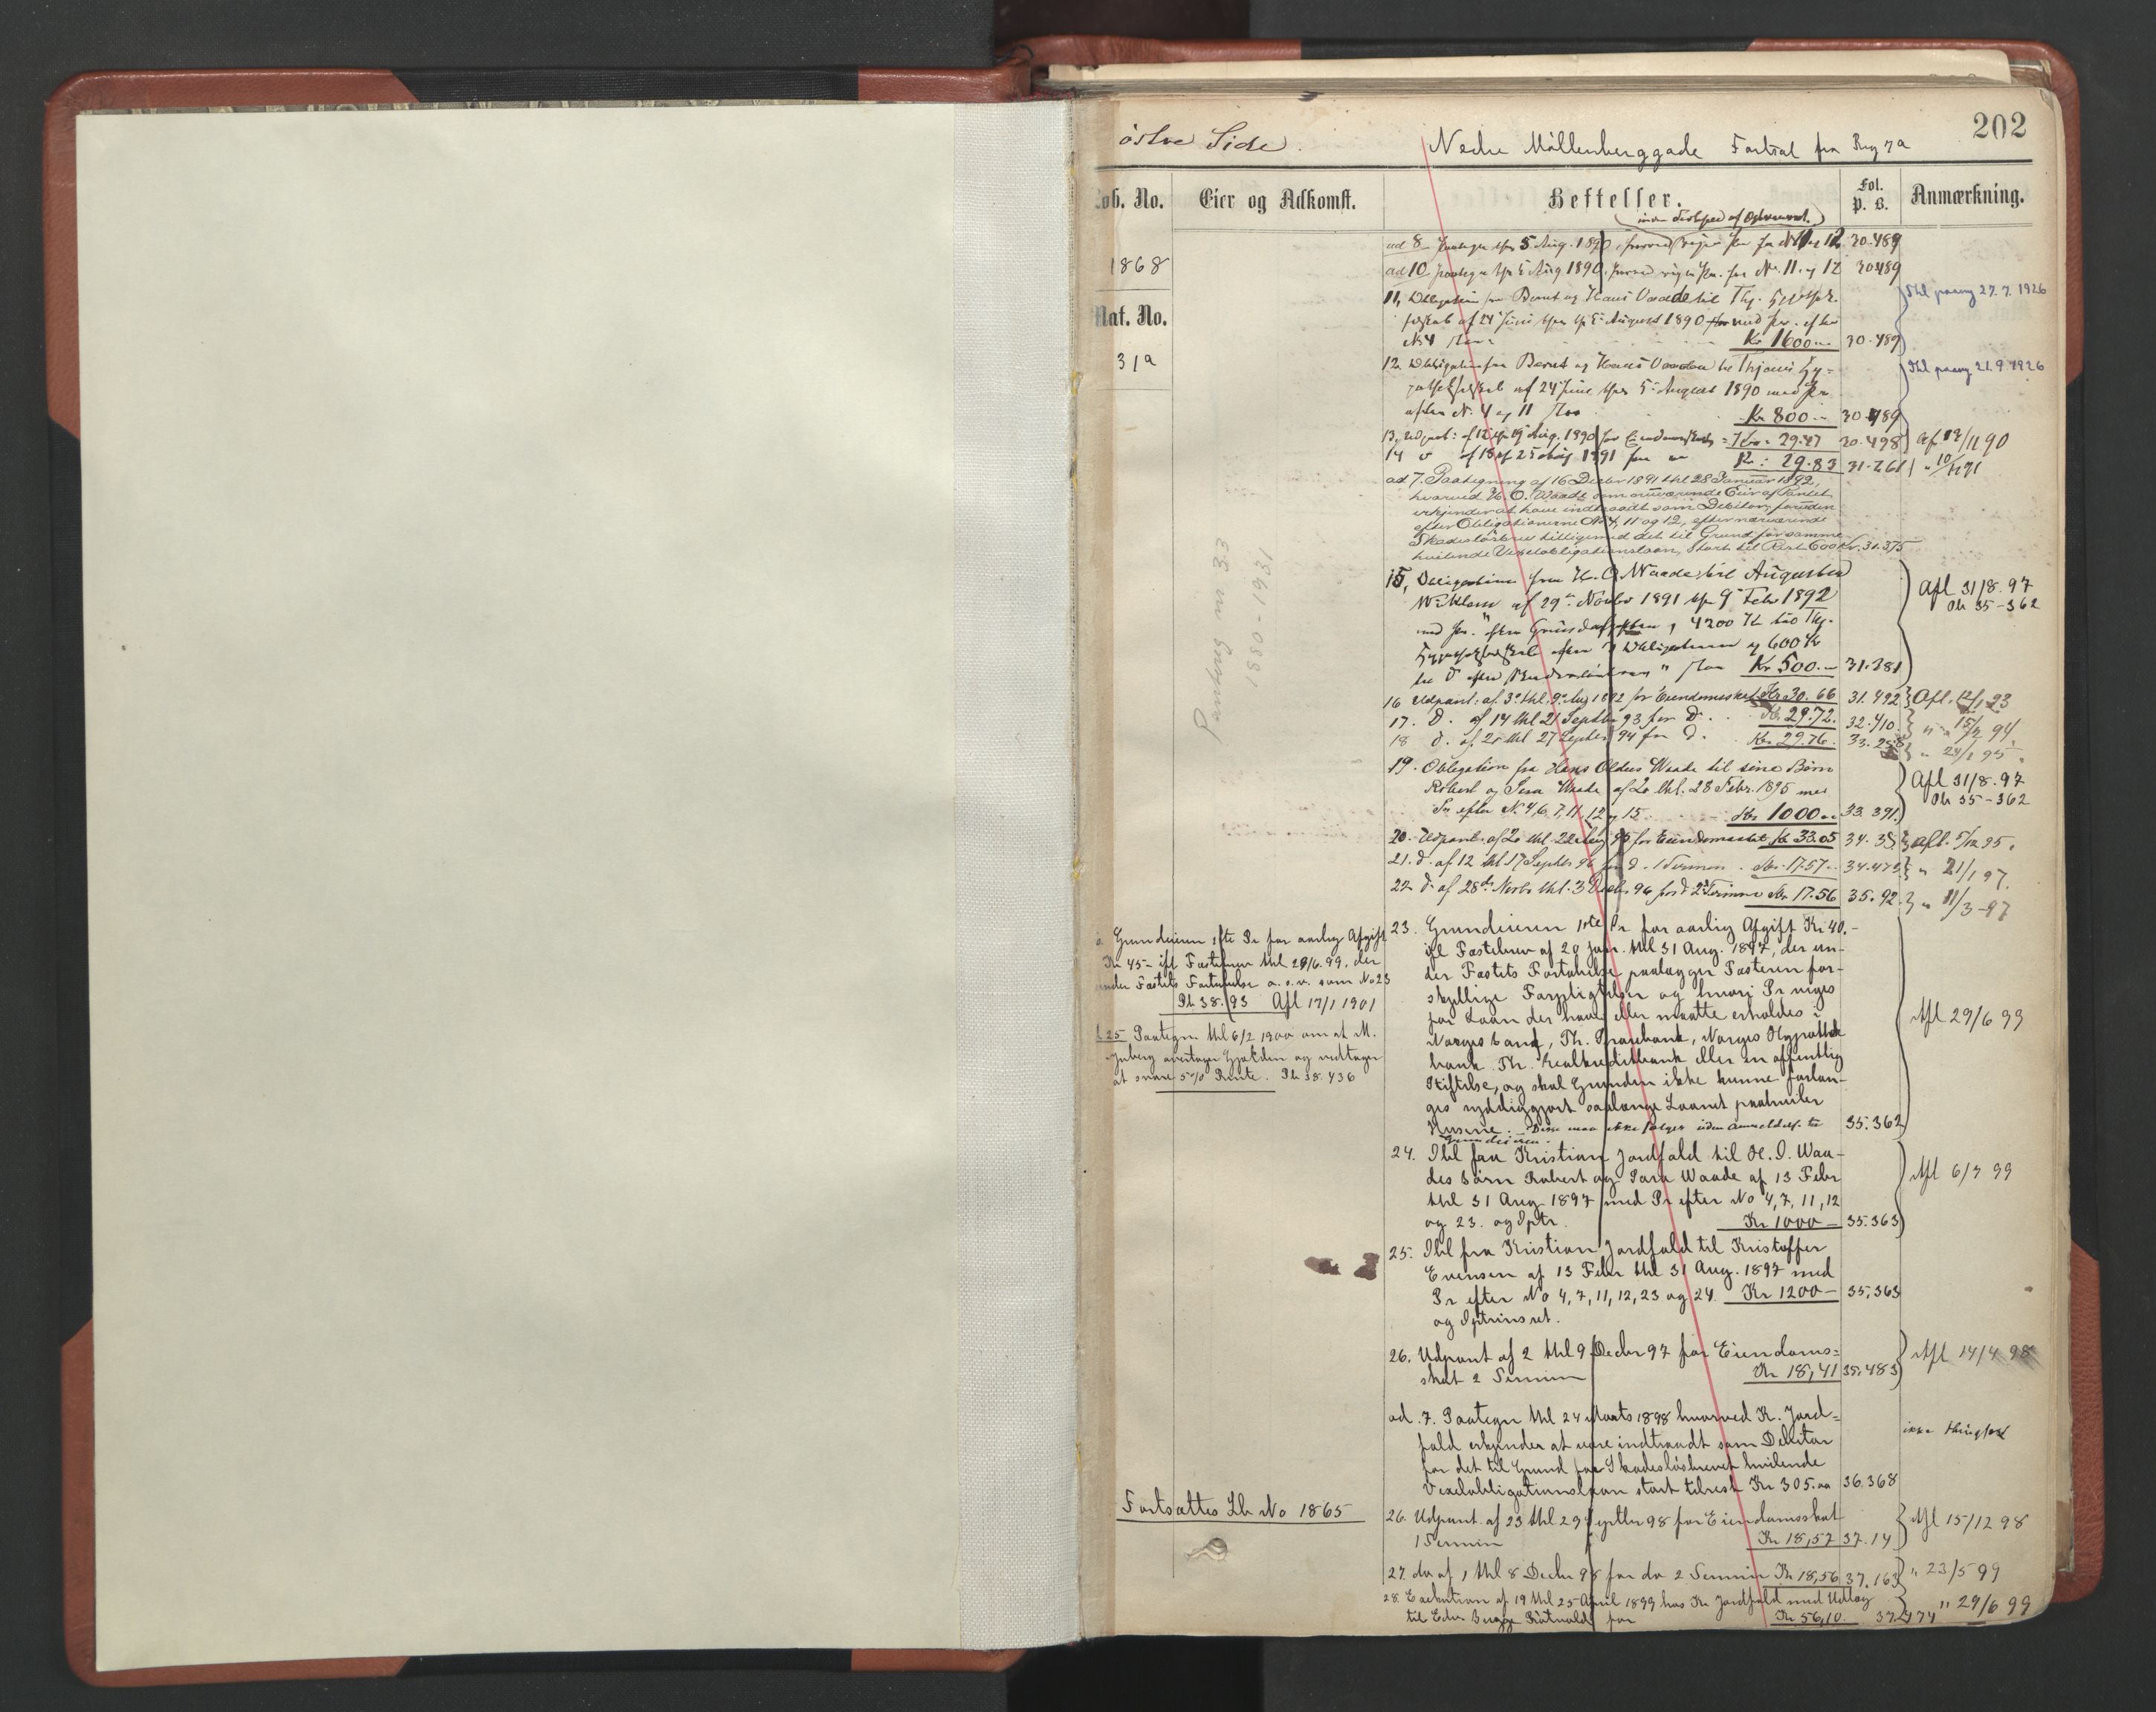 202
østre Side.
Nedre Möllenberggade Fortsat fra Reg 7a
Løb. No.
Eier og Adkomst.
Heftelser.
Fol. P. B.
Anmærkning.
1868
Mat. No.
31a
Pantereg m 33
1880-1931
ad 8 5 Aug. 1890, for No 11 og 12 30.489
ad 10 5 Aug 1890 for No. 11 og 12 30489
11, Obligation fra Bernt og Hans Waade til Thj. Hypothek
selskab af 24 Juni 5 August 1890 med Pr. efter
No 4 stor Kr 1600 30.489
27.7.1926
12 Obligation fra Bernt og Hans Waade til Thjems Hy-
pothekselskab af 24 Juni 5 August 1890 med Pr.
efter No. 4 og 11 stor Kr 800 30.489
21.9.1926
13, Udpant: af 12 19 Aug. 1890 for Eiendomsskat Kr. 29.47 30.498 Af 19/11 90
14 af 18 25 1891 for Kr: 29.83 31.261
ad 7. Paategning af 16 Decbr 1891 thl 28 Januar 1892,
hvorved H. O. Waade som nuværende Eier af Pantet
erkjender at have indtraadt som Debitor, foruden
efter Obligationerne No 4, 11 og 12, efter nærværende
Skadesløsbrev tilligemed det til Grund for samme
hvilende Vexelobligationslaan, stort til Rest 600 Kr. 31.375
15, Obligation fra H. O. Waade til Augusta
af 29 Novbr 1891 9 Febr 1892
med Pr. efter 4200 Kr til Thj.
Hypothekselskab efter Obligationer og 600 Kr
stor Kr 500 31.381
Afl 31/8.97
Pb 35-362
16 Udpant: af 3 thl. 9 Aug 1892 for Eiendomsskat Kr 30.66 31.492 Afl. 12/1 93
17. D. af 14 thl 21 Septbr 93 for D. Kr. 29.72. 32.410
18 d. af 20 thl 27 Septbr 94 for D. Kr. 29.76. 33.258 " 24/1 95.
19. Obligation fra Hans Oldus Waade til sine Børn
Robert og Sara Waade af 20 thl. 28 Febr. 1895 med
Pr efter No 4, 6, 7, 11, 12 og 15 Kr 1000 33.391
Afl 31/8.97
Pb 35-362
20. Udpant. af 20 thl. 22 Aug 95 for Eiendomsskat Kr 33.05 34.35 Afl. 5/12 95.
21. d. af 12 thl 17 Septbr 96 for d. 1 Termin. Kr. 17.57 34.473 " 21/1 97.
22 d. af 28de Novbr thl. 3 Decbr 96 for d 2 Termin Kr 17.56 35.92 " 11/3-97
23. Grundeieren 1ste Pr for aarlig Afgift Kr 40.-
ifl Fæstebrev af 20 Janr. thl 31 Aug. 1897, der un-
der Fæstets Fortabelse paalægger Fæsteren for-
skjellige Forpligtelser og hvori Pr viges
for Laan der have eller maatte erholdes i
Norges Bank, Th. Sparebank, Norges Hypothek
bank Th. Realkreditbank eller en offentlig
Stiftelse, og skal Grunden ikke kunne forlan-
ges ryddiggjort saalænge Laanet paahviler
Husene. Disse maa ikke sælges uden Anmeldelse til 35.362
Grundeieren.
Afl 29/6 99
24. Obl fra Kristian Jordfald til H. O. Waa-
des Børn Robert og Sara Waade af 13 Febr
thl 31 Aug 1897 med Pr efter No 4, 7, 11, 12
og 23. og Optr. Kr 1000- 35.363
Afl 6/7 99
25. Obl fra Kristian Jordfald til Kristoffer
Evensen af 13 Febr thl 31 Aug. 1897 med
Pr efter No 4, 7, 11, 12, 23 og 24. Kr 1200- 35.363
og Optrinsret.
26. Udpant af 2 thl 9 Decbr 97 for Eiendoms-
skat 2 Termin Kr 18,41 35.483
Afl 14/4 98
ad. 7. Paategn thl 24 Marts 1898 hvorved K. Jord-
fald erkjender at være indtraadt som Debitor
for det til Grund for Skadesløsbrevet hvilende
Vexelobligationslaan stort tilrest Kr 305.00 36.368
ikke thinglæst
26. Udpant. af 23 thl 29 Septbr 98 for Eiendomsskat
1 Termin Kr 18,57 37.14
Afl 15/12 98
27 do af 1 thl 8 Decbr 98 for do 2 Termin Kr 18,56 37.163 " 23/5 99
28. Exekution af 19 thl 25 April 1899 hos Kr Jordfald med Udlæg
til Edv. Bugge for Kr 56,10. 37.474 " 29/6 99
Grundeieren 1ste Pr for aarlig Afgift
Kr 45- ifl Fæstebrev thl 29/6.99, der
under Fæstets Fortabelse o. s. v. som No 23
Pb 38.93 Afl 17/1 1901
25 Paategn thl 6/2 1900 om at M.
overtager Gjælden og vedtager
at svare 5% Rente. Pb 38.436
Fortsættes Lb No 1865